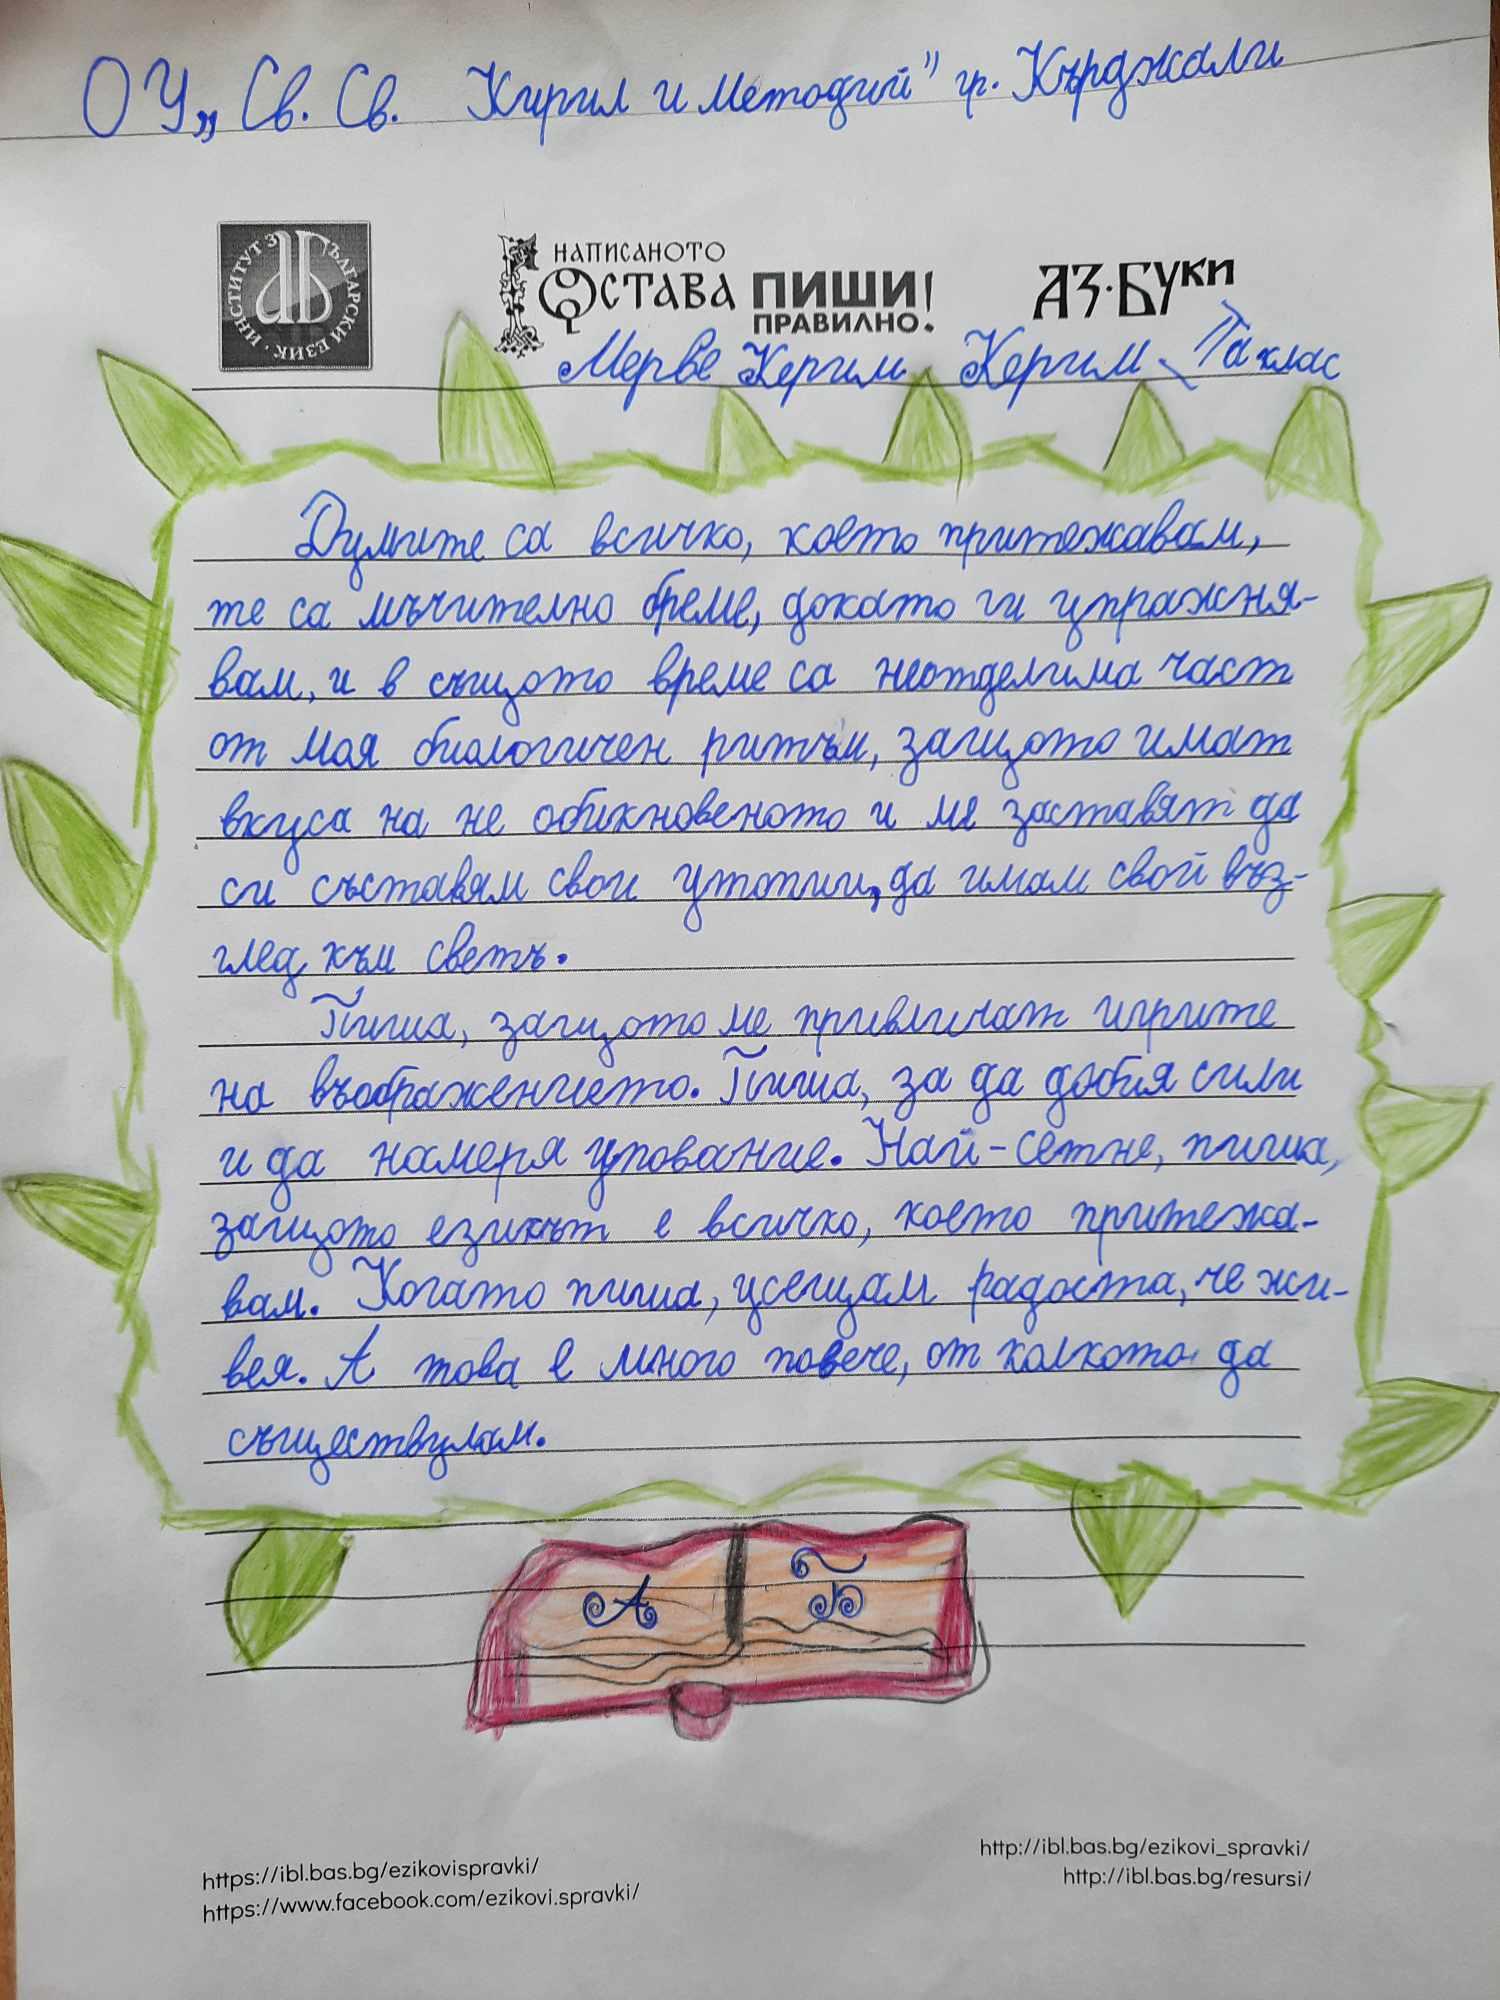 ОУ „Св. Св. Кирил и Методий" гр. Кърджали
ИНСТИТУТ ЗА БЪЛГАРСКИ ЕЗИК
НАПИСАНОТО
ОСТАВА ПИШИ
ПРАВИЛНО!
АЗ·БУКИ
Мерве Керим Керим - а клас
Думите са всичко, което притежавам,
те са мъчително бреме, докато ги упражня-
вам, и в същото време са неотделима част
от моя биологичен ритъм, защото имат
вкуса на не обикновеното и ме заставят да
си съставям свои утопии, да имам свой въз-
глед към светъ.
Пиша, защото ме привличат игрите
на въображението. Пиша, за да добия сили
и да намеря упование. Най-сетне, пиша,
защото езикът е всичко, което притежа-
вам. Когато пиша, усещам радоста, че жи-
вея. А това е много повече, от колкото да
съществувам.
А Б
https://ibl.bas.bg/ezikovispravki/
https://www.facebook.com/ezikovi.spravki/
http://ibl.bas.bg/ezikovi_spravki/
http://ibl.bas.bg/resursi/